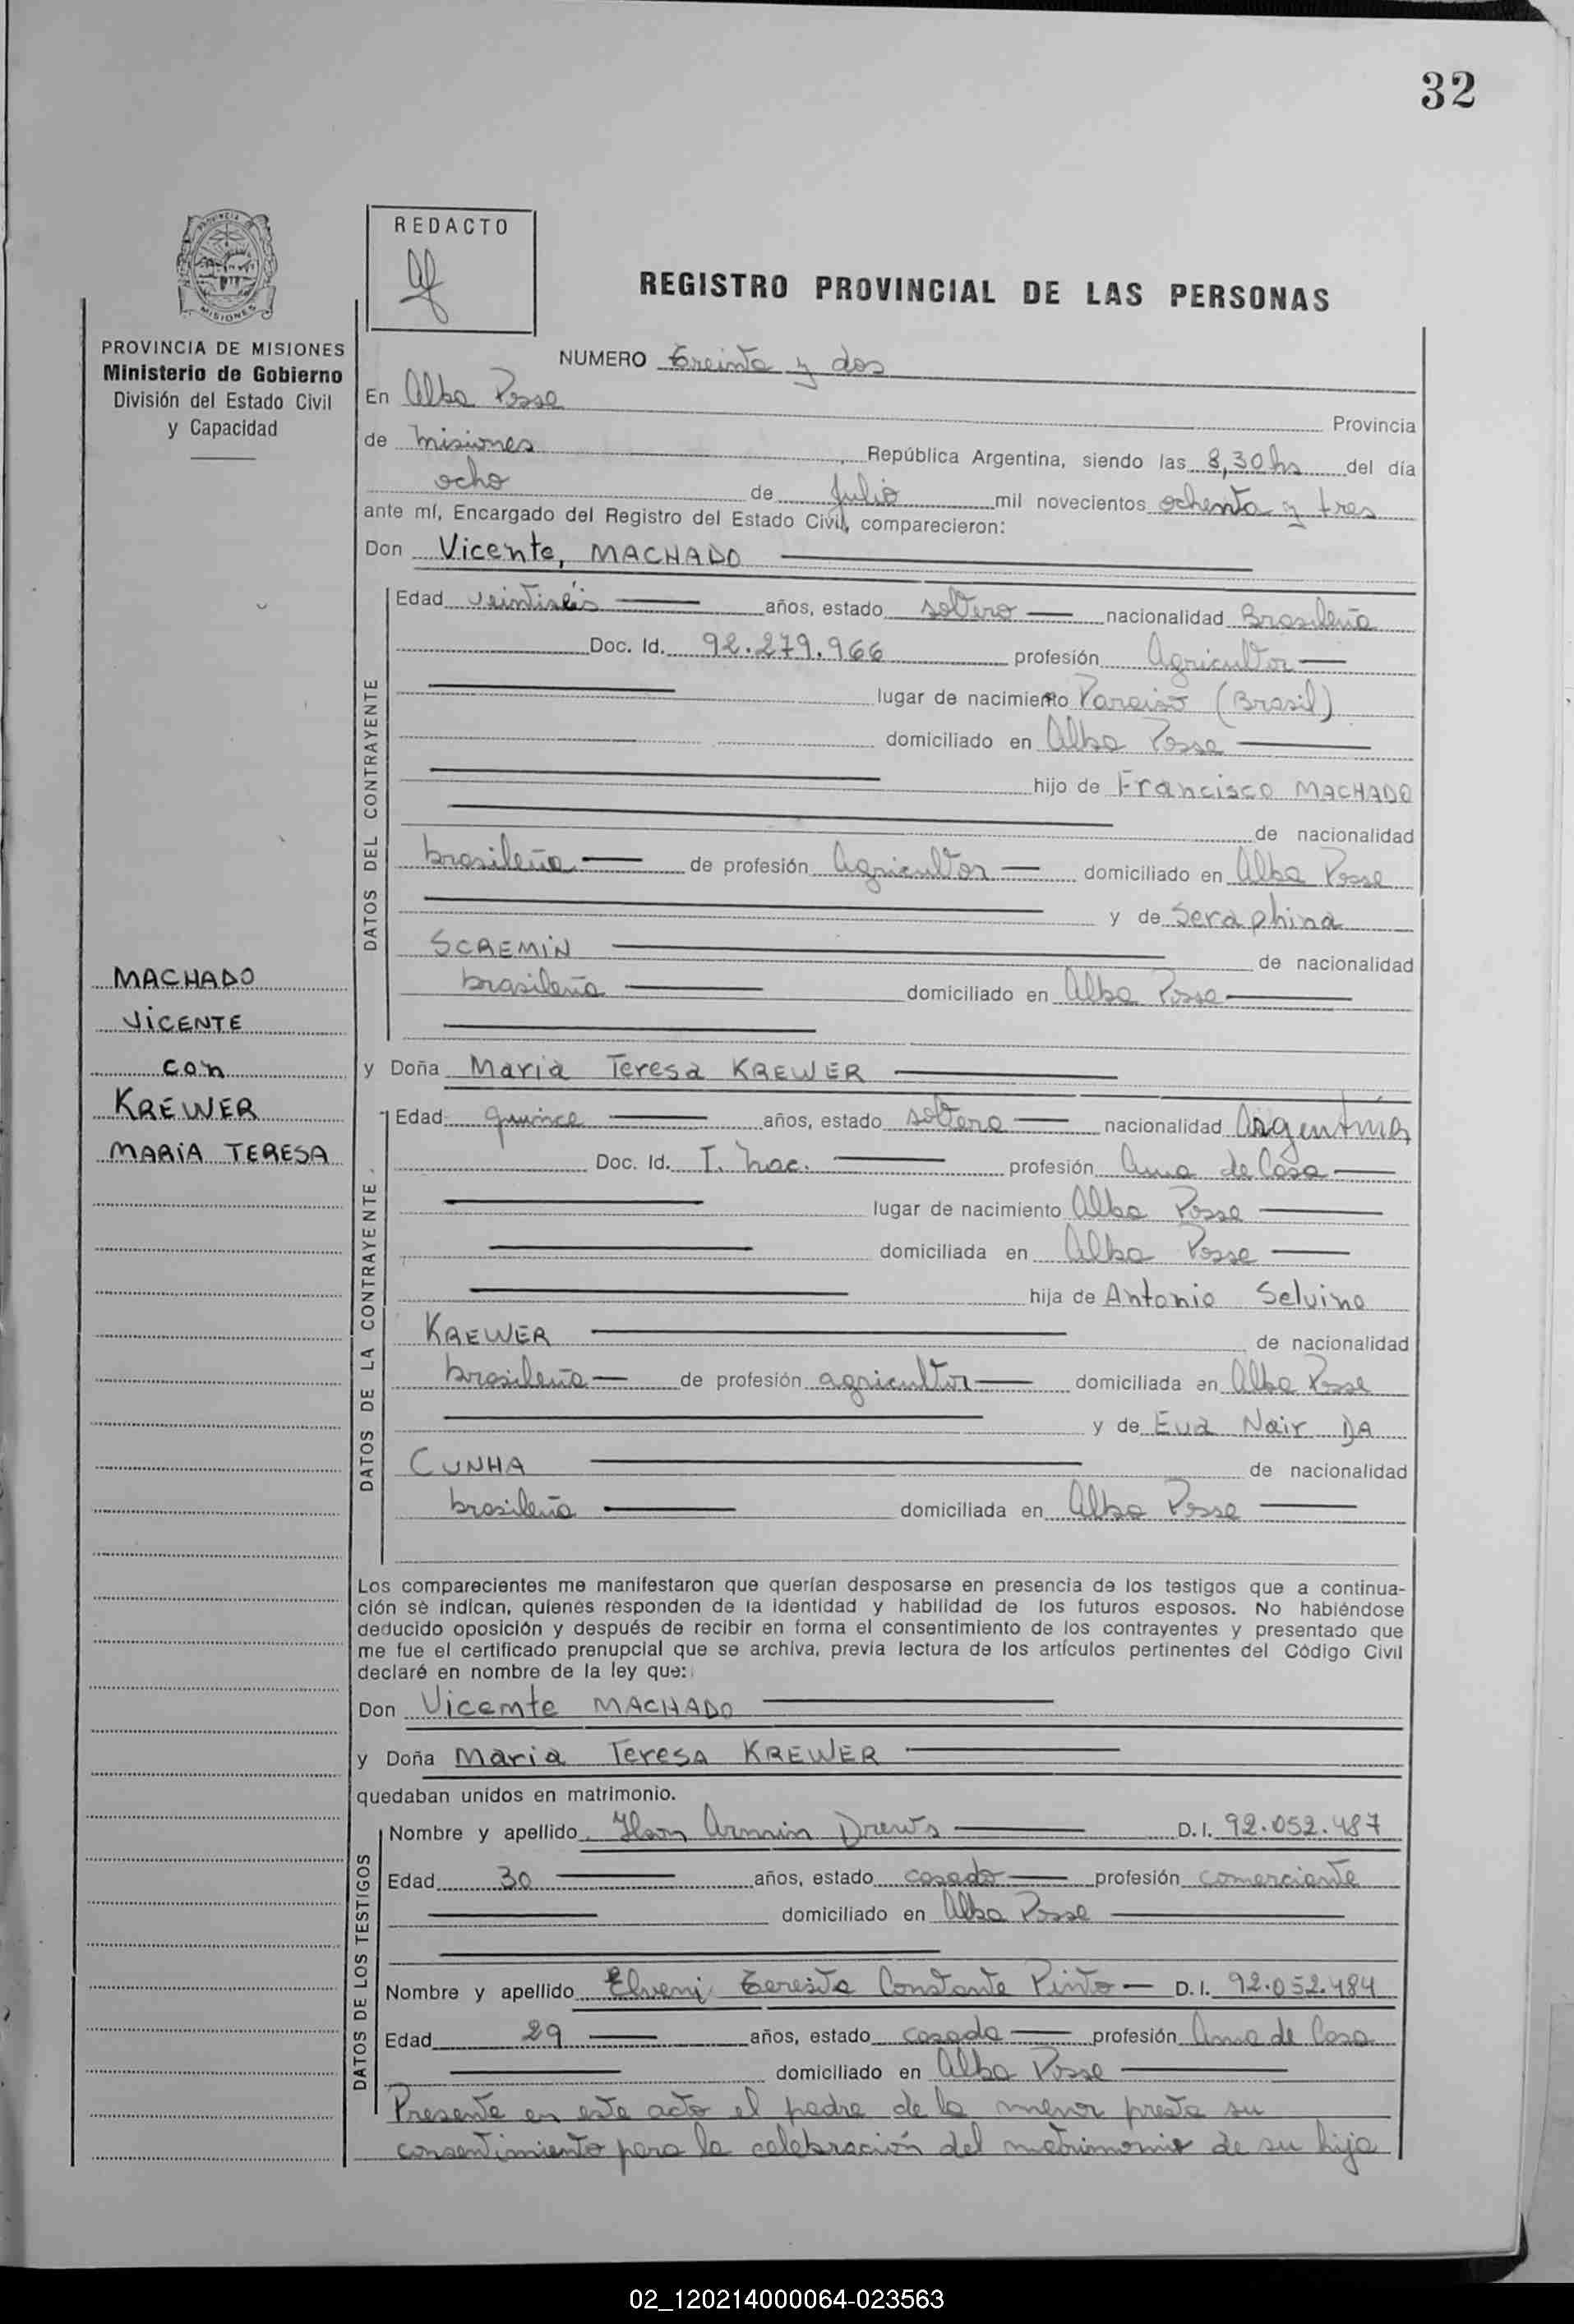 32
PROVINCIA DE MISIONES
Ministerio de Gobierno
División del Estado Civil
y Capacidad
MACHADO
VICENTE
con
KREWER
MARIA TERESA
REDACTO
REGISTRO PROVINCIAL DE LAS PERSONAS
NUMERO Treinta y dos
En Alba Posse Provincia
de Misiones, República Argentina, siendo las 8,30 hs del día
ocho de Julio mil novecientos ochenta y tres
ante mí, Encargado del Registro del Estado Civil, comparecieron:
Don Vicente, MACHADO
DATOS DEL CONTRAYENTE
Edad veintiséis años, estado soltero nacionalidad Brasileña
Doc. Id. 92.279.966 profesión Agricultor
lugar de nacimiento Paraiso (Brasil)
domiciliado en Alba Posse
hijo de Francisco MACHADO
de nacionalidad
brasileña de profesión Agricultor domiciliado en Alba Posse
y de Seraphina
SCREMIN de nacionalidad
brasileña domiciliado en Alba Posse
y Doña Maria Teresa KREWER
DATOS DE LA CONTRAYENTE.
Edad quince años, estado soltera nacionalidad Argentina
Doc. Id. T. nac. profesión Ama de Casa
lugar de nacimiento Alba Posse
domiciliada en Alba Posse
hija de Antonio Selvino
KREWER de nacionalidad
brasileña de profesión agricultor domiciliada en Alba Posse
y de Eva Nair DA
CUNHA de nacionalidad
brasileña domiciliada en Alba Posse
Los comparecientes me manifestaron que querían desposarse en presencia de los testigos que a continua-
ción se indican, quienes responden de la identidad y habilidad de los futuros esposos. No habiéndose
deducido oposición y después de recibir en forma el consentimiento de los contrayentes y presentado que
me fue el certificado prenupcial que se archiva, previa lectura de los artículos pertinentes del Código Civil
declaré en nombre de la ley que:
Don Vicente MACHADO
y Doña Maria Teresa KREWER
quedaban unidos en matrimonio.
DATOS DE LOS TESTIGOS
Nombre y apellido Armin Drews D.I. 92.052.487
Edad 30 años, estado casado profesión comerciante
domiciliado en Alba Posse
Nombre y apellido Teresita Constante Pinto D.I. 92.052.484
Edad 29 años, estado casada profesión Ama de Casa
domiciliado en Alba Posse
Presente en este acto el padre de la menor presta su
consentimiento para la celebración del matrimonio de su hija
02_120214000064-023563